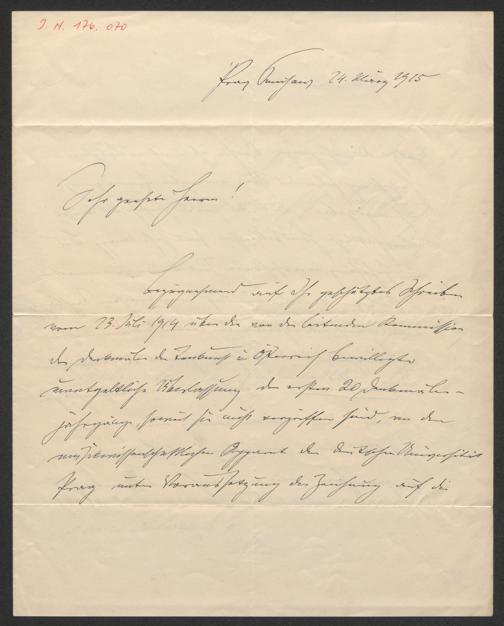 J. N. 176.070
Prag 24. März 1915
Sehr geehrte Herren!
Bezugnehmend auf Ihr geschätztes Schreiben
vom 23. Juli 1914 über die von der leitenden Kommission
der Denkmäler der Tonkunst in Österreich bewilligte
unentgeltliche Überlassung der ersten 20 Denkmäler-
jahrgänge, soweit sie nicht vergriffen sind, an den
musikwissenschaftlichen Apparat der deutschen Universität
Prag unter Voraussetzung der Zeichnung auf die